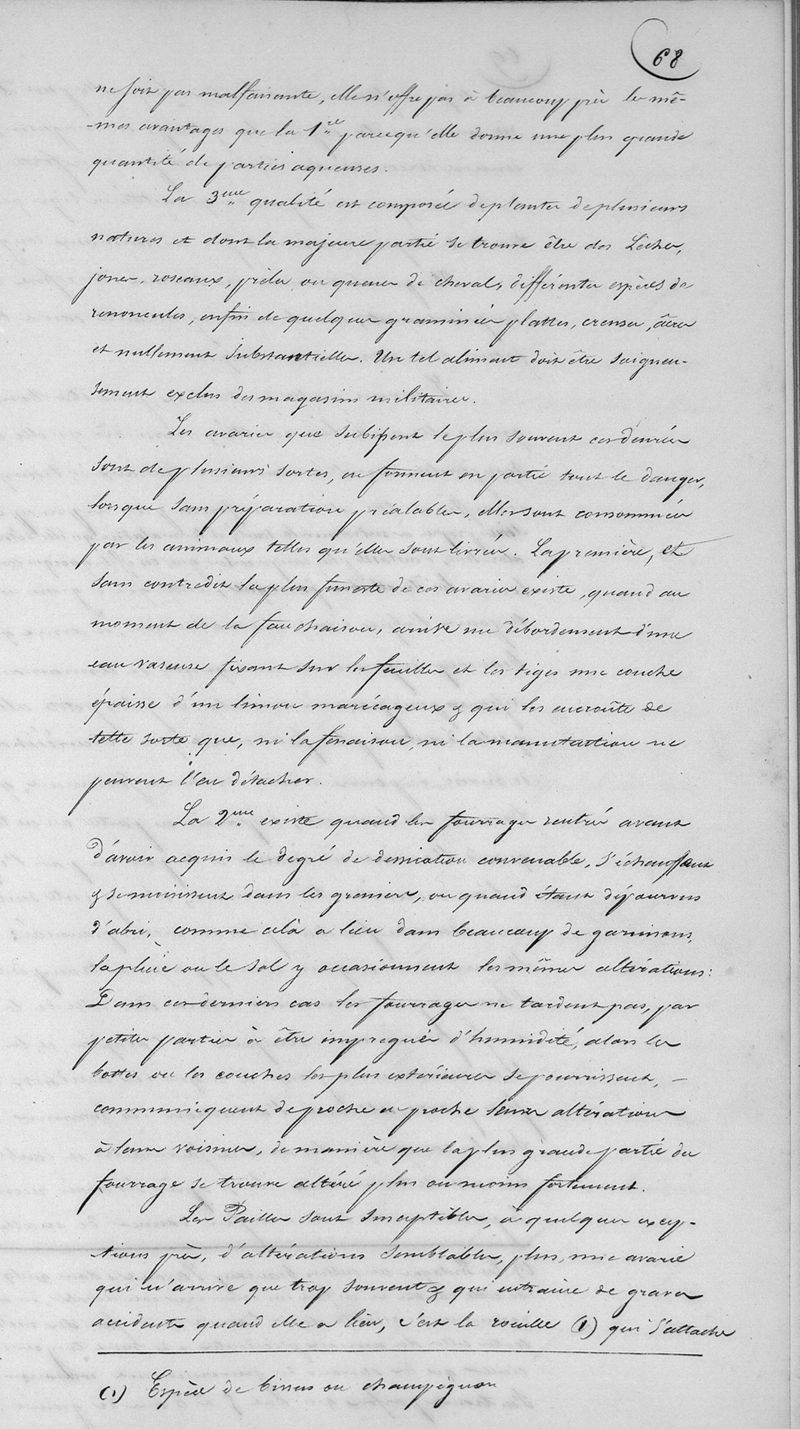 68
ne soit pas malfaisante, elle n'offre pas à beaucoup près les mê-
-mes avantages que la 1ere parcequ'elle donne une plus grande
quantité de parties aqueuses.
La 3eme qualité est composée de plantes de plusieurs
natures et dont la majeure partie se trouve être des Lèches,
joncs, roseaux, prêles ou queues de cheval, différentes espèces de
renoncules, enfin de quelques graminées plattes, creuses, âcres
et nullement substantielles. Un tel aliment doit être soigneu-
sement exclus des magasins militaires.
Les avaries que subissent le plus souvent ces denrées
sont de plusieurs sortes, en forment en partie tout le danger,
lorsque sans préparation préalables, elles sont consommées
par les animaux telles qu'elles sont livrées. La première, et
sans contredit la plus funeste de ces avaries existe, quand au
moment de la fauchaison, arrive un débordement d'une
eau vaseuse fixant sur les feuilles et les tiges une couche
épaisse d'un limon marécageux & qui les encroûte de
telle sorte que, ni la fenaison, ni la manutention ne
peuvent l'en détacher.
La 2eme existe quand les fourrages rentrés avant
d'avoir acquis le degré de dessication convenable, s'échauffent
& se moisissent dans les greniers, ou quand étant dépourvus
d'abri, comme celà a lieu dans beaucoup de garnisons,
la pluie ou le sol y occasionnent les mêmes altérations:
Dans ces derniers cas les fourrages ne tardent pas, par
petites parties à être impregnés d'humidité, alors les
bottes ou les couches les plus extérieures se pourrissent,
communiquent de proche en proche leurs altérations
à leurs voisines, de manière que la plus grande partie du
fourrage se trouve altéré plus ou moins fortement.
Les Pailles sont susceptibles, à quelques excep-
tions près, d'altérations semblables, plus, une avarie
qui n'arrive que trop souvent & qui entraine de graves
accidents quand elle a lieu, c'est la rouille (1) qui s'attache
(1) Espèce de bissus ou champignon